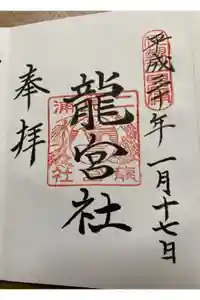 平成三十年一月十七日
龍宮社
奉拝